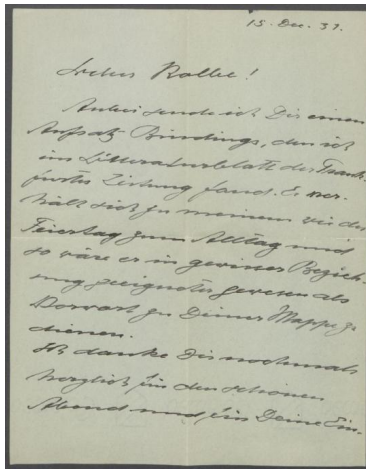 15. Dez. 37.
Lieber Kolbe!
Anbei sende ich Dir einen
Aufsatz Bindings, den ich
im Litteraturblatt der Frank-
furter Zeitung fand. Er ver-
hält sich zu meinem wie der
Feiertag zum Alltag und
so wäre er in gewisser Bezieh-
ung geeigneter gewesen als
Vorwort zu Deiner Mappe zu
dienen.
Ich danke Dir nochmals
herzlich für den schönen
Abend und für Deine Ein-